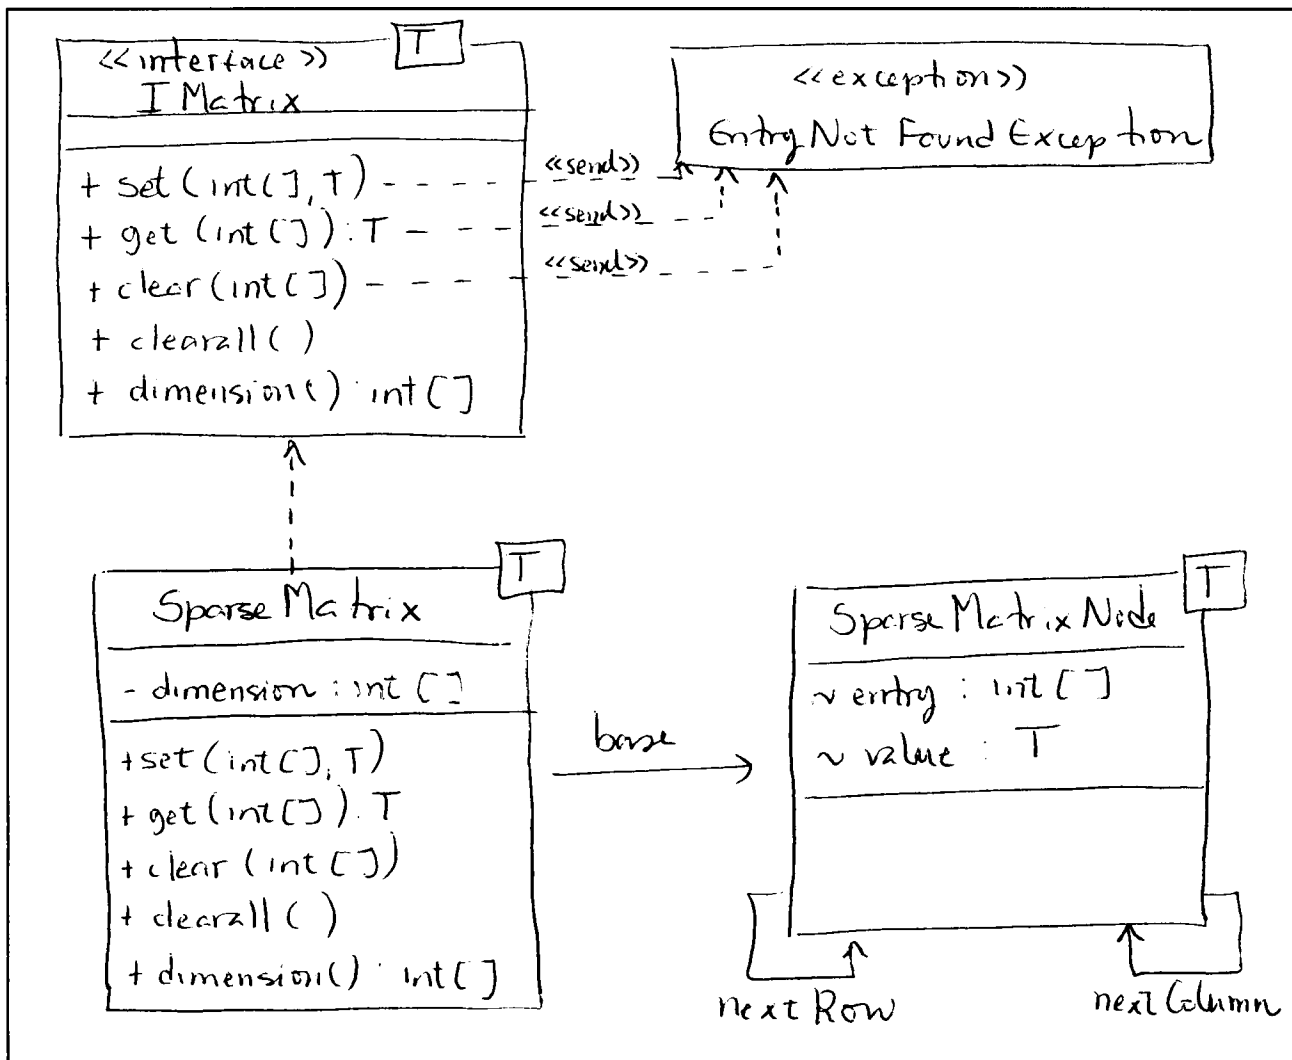 <<interface>>
T
I Matrix
+ set(int[], T)
+ get(int[]): T
+ clear(int[])
+ clearall()
+ dimension() int[]
<<send>>
<<send>>
<<send>>
<<exception>>
Entry Not Found Exception
T
Sparse Matrix
- dimension: int[]
+ set(int[], T)
+ get(int[]). T
+ clear(int[])
+ clearall()
+ dimension() int[]
base
T
Sparse Matrix Node
~ entry: int[]
~ value: T
next Row
next Column